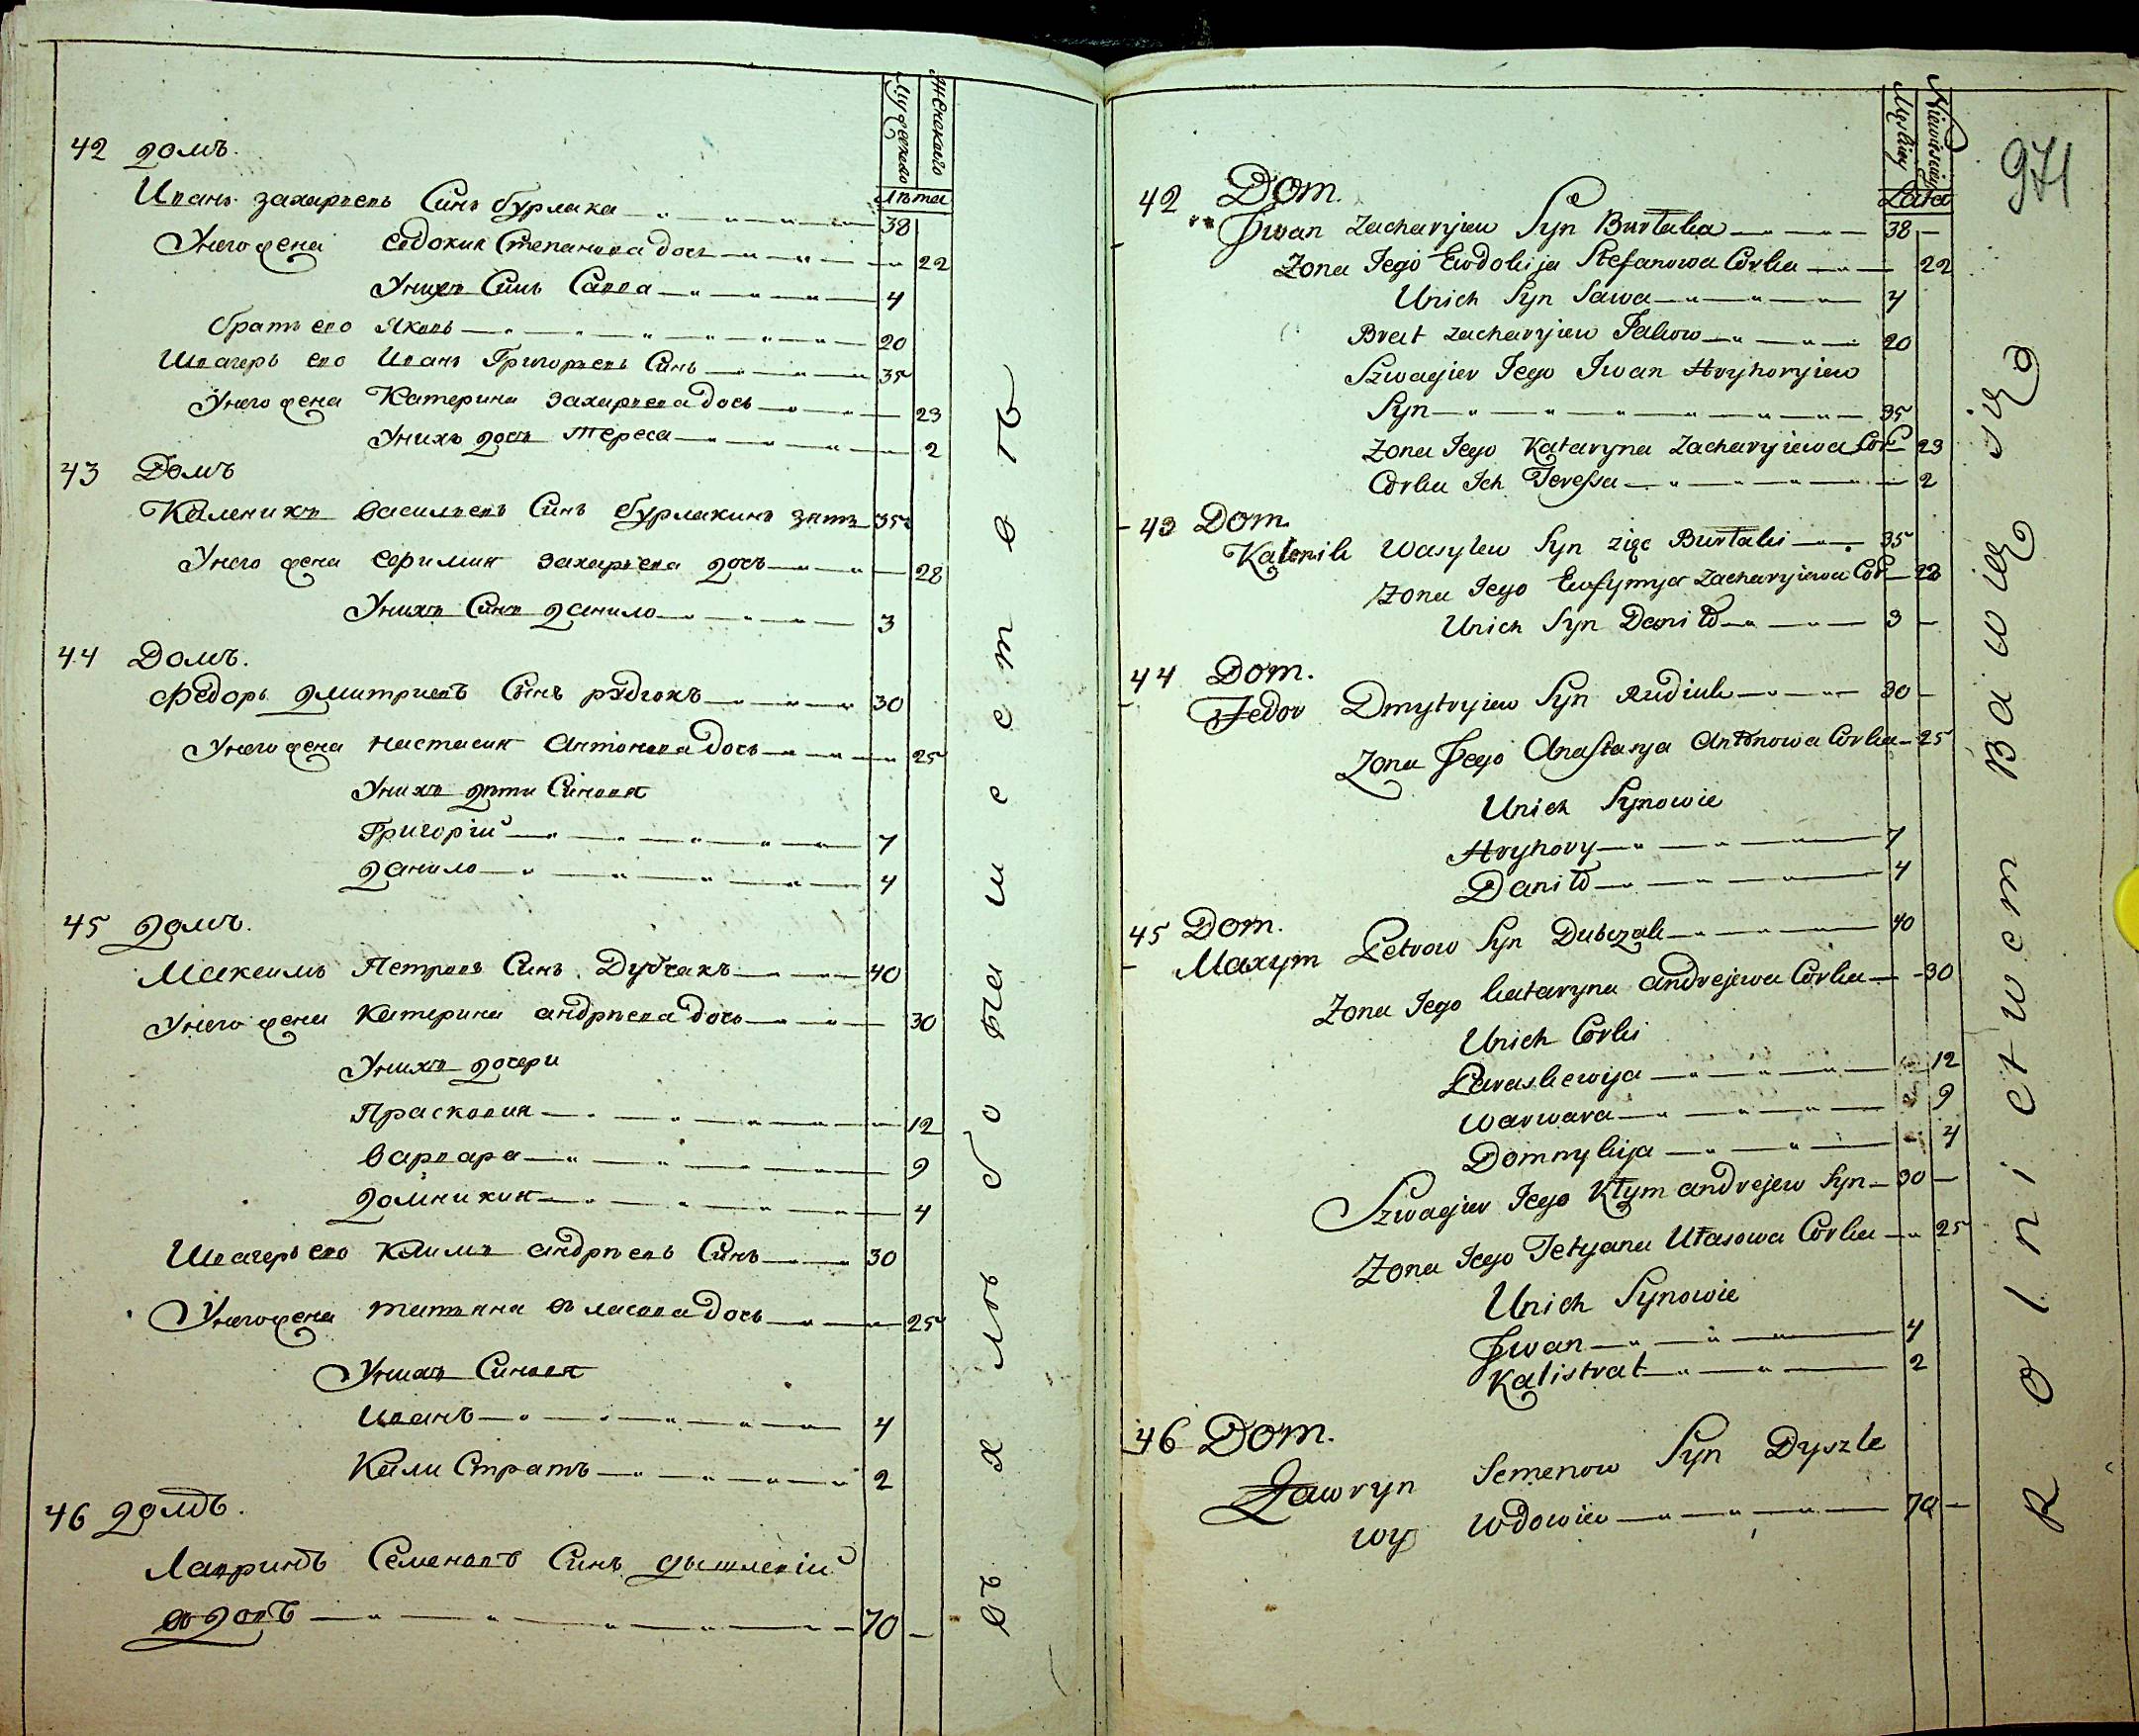 Мужеского
Женского
Лѣта
42 Домъ.
Иванъ Захарьевъ Синъ бурлака 38
У него жена Евдокия Степанова дочь 22
У нихъ Синъ Савва 4
братъ его Яковъ 20
Швагеръ его Иванъ Григорьевъ Синъ 35
У него жена Катерина Захарьева дочь 23
У нихъ дочь Тереса 2
43 Домъ
Каленикъ Васильевъ Синъ бурлакинъ зять 35
У него жена Евфимия Захарьева дочь 28
У нихъ Синъ Данило 3
44 Домъ.
Федоръ Дмитриевъ Синъ рудюкъ 30
У него жена Настасия Антонова дочь 25
У нихъ дѣти Синовя
Григорій 7
Данило 4
45 Домъ.
Максимъ Петровъ Синъ Дубчакъ 40
У него жена Катерина андрѣева дочь 30
У нихъ дочери
Прасковия 12
варвара 9
Домникия 4
Швагеръ его Климъ андрѣевъ Синъ 30
У него жена татьяна власова дочь 25
У нихъ Синовя
Иванъ 4
Кали Стратъ 2
46 Домъ.
Лавринъ Семеновъ Синъ дышлевій
вдовъ 70 —
въ хлѣбопашествѣ
971
Męskiey
Niewiesciey
Lata
42 Dom.
Jwan Zacharyiew Syn Burłaka 38 —
Zona Jego Ewdokija Stefanowa Corka 22
Unich Syn Sawa 4
Brat Zacharyiew Jakow 20
Szwagier Jego Jwan Hryhoryiew
Syn 35
Zona Jego Kataryna Zacharyiewa Cor 23
Corka Ich Teressa 2
43 Dom.
Kalenik Wasylew Syn zięć Burłaki 35
Zona Jego Eufymya Zacharyiewa Cor 28
Unich Syn Daniło 3 —
44 Dom.
Fedor Dmytryiew Syn Rudiuk 30 —
Zona Jego Anastasya Antonowa Corka 25
Unich Synowie
Hryhory 7
Daniło 4
45 Dom.
Maxym Petrow Syn Dubczak 40
Zona Jego Kataryna andrejewa Corka 30
Unich Corki
Paraskewija 12
Warwara 9
Domnykija 4
Szwagier Jego Kłym andrejew Syn 30 —
Zona Jego Tetyana Ułasowa Corka 25
Unich Synowie
Jwan 4
Kalistrat 2
46 Dom.
Ławryn Semenow Syn Dyszle
wy Wdowiec 70 —
Rolnictwem Bawią się